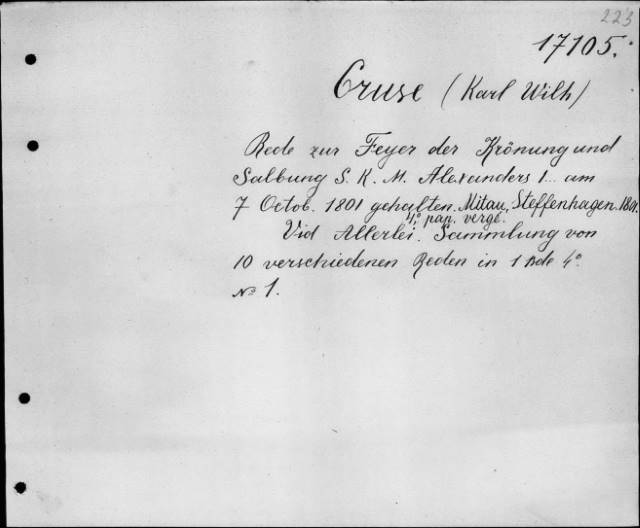 223
17105.
Cruse (Karl Wilh)
Rede zur Feyer der Krönung und
Salbung S. K. M. Alexanders I. am
7 Octob. 1801 gehalten. Mitau, Steffenhagen. 1801.
4° pap. vergé.
Vid Allerlei. Sammlung von
10 verschiedenen Reden in 1 Bde 4°
No 1.